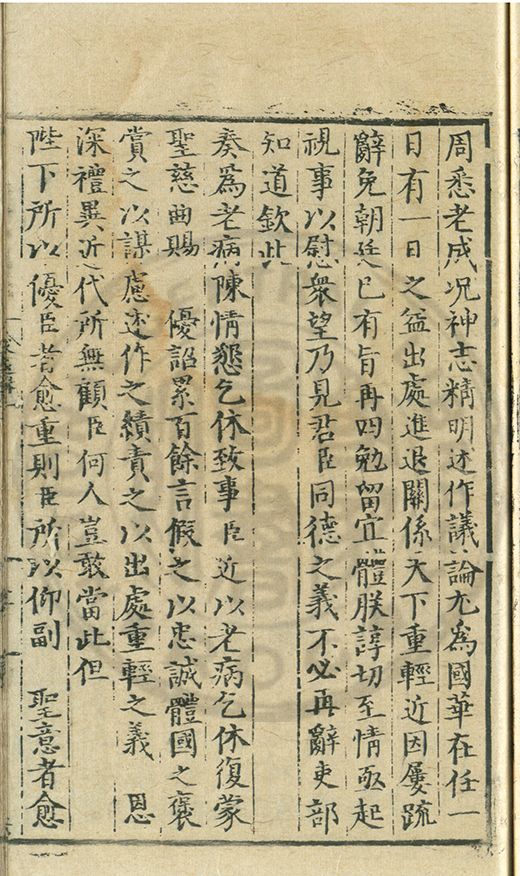 周悉老成况神志精明述作議論尤爲國華在任一
日有一日之益出處進退關係天下重輕近因屢疏
辭免朝廷已有旨再四勉留宜體朕諄切至情亟起
視事以慰衆望乃見君臣同德之義不必再辭吏部
知道欽此
奏爲老病陳情懇乞休致事臣近以老病乞休復蒙
聖慈曲賜 優詔累百餘言假之以忠誠體國之褒
賞之以謀慮述作之績責之以出處重輕之義 恩
深禮異近代所無顧臣何人豈敢當此但
陛下所以優臣者愈重則臣所以仰副 聖意者愈